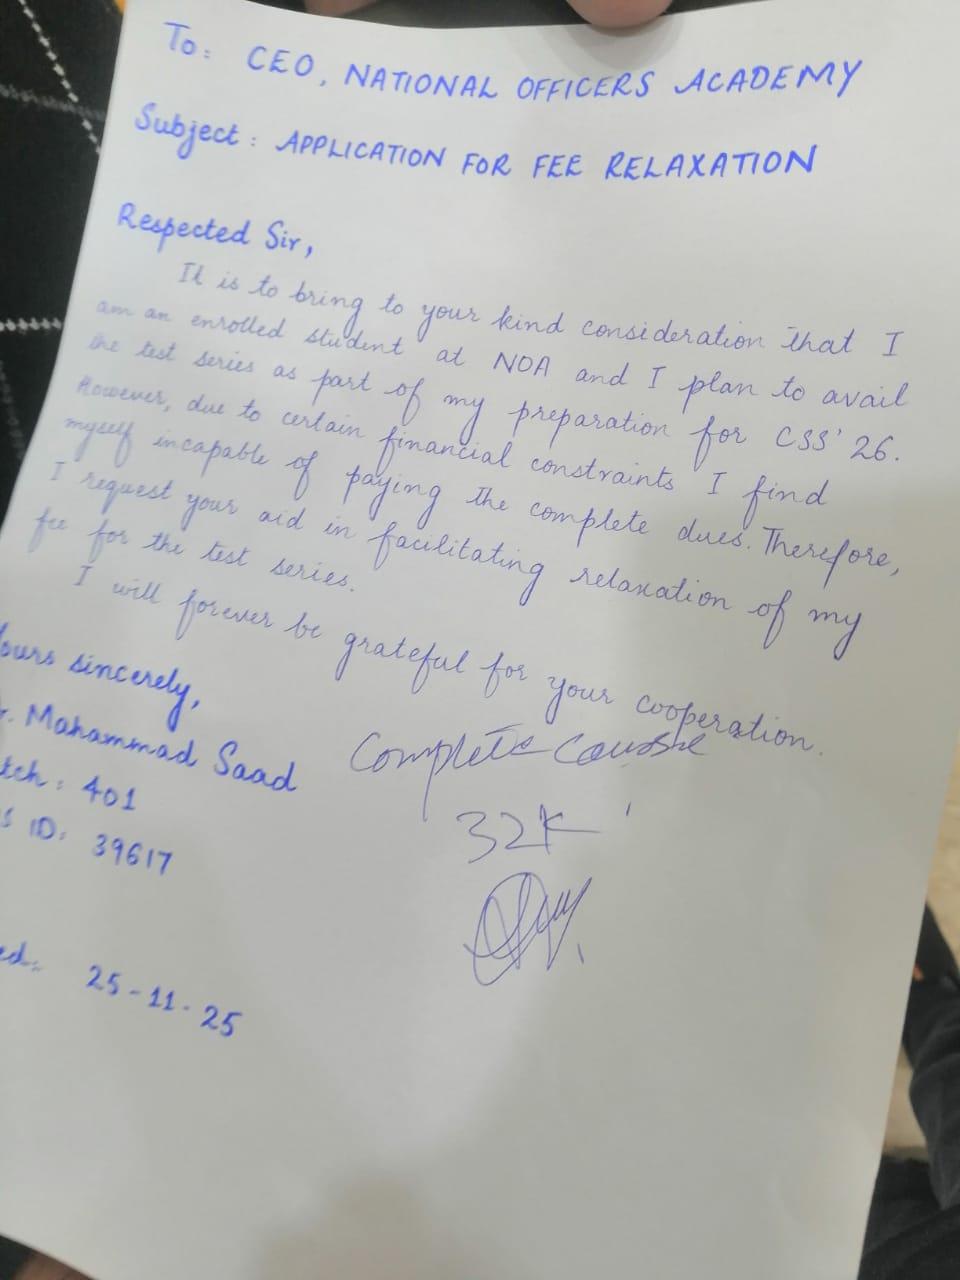 To: CEO, NATIONAL OFFICERS ACADEMY
Subject: APPLICATION FOR FEE RELAXATION
Respected Sir,
It is to bring to your kind consideration that I
am an enrolled student at NOA and I plan to avail
the test series as part of my preparation for CSS' 26.
However, due to certain financial constraints I find
myself incapable of paying the complete dues. Therefore,
I request your aid in facilitating relaxation of my
fee for the test series.
I will forever be grateful for your cooperation.
Yours sincerely,
Mahammad Saad
401
ID: 39617
25-11-25
Complete Course
32K